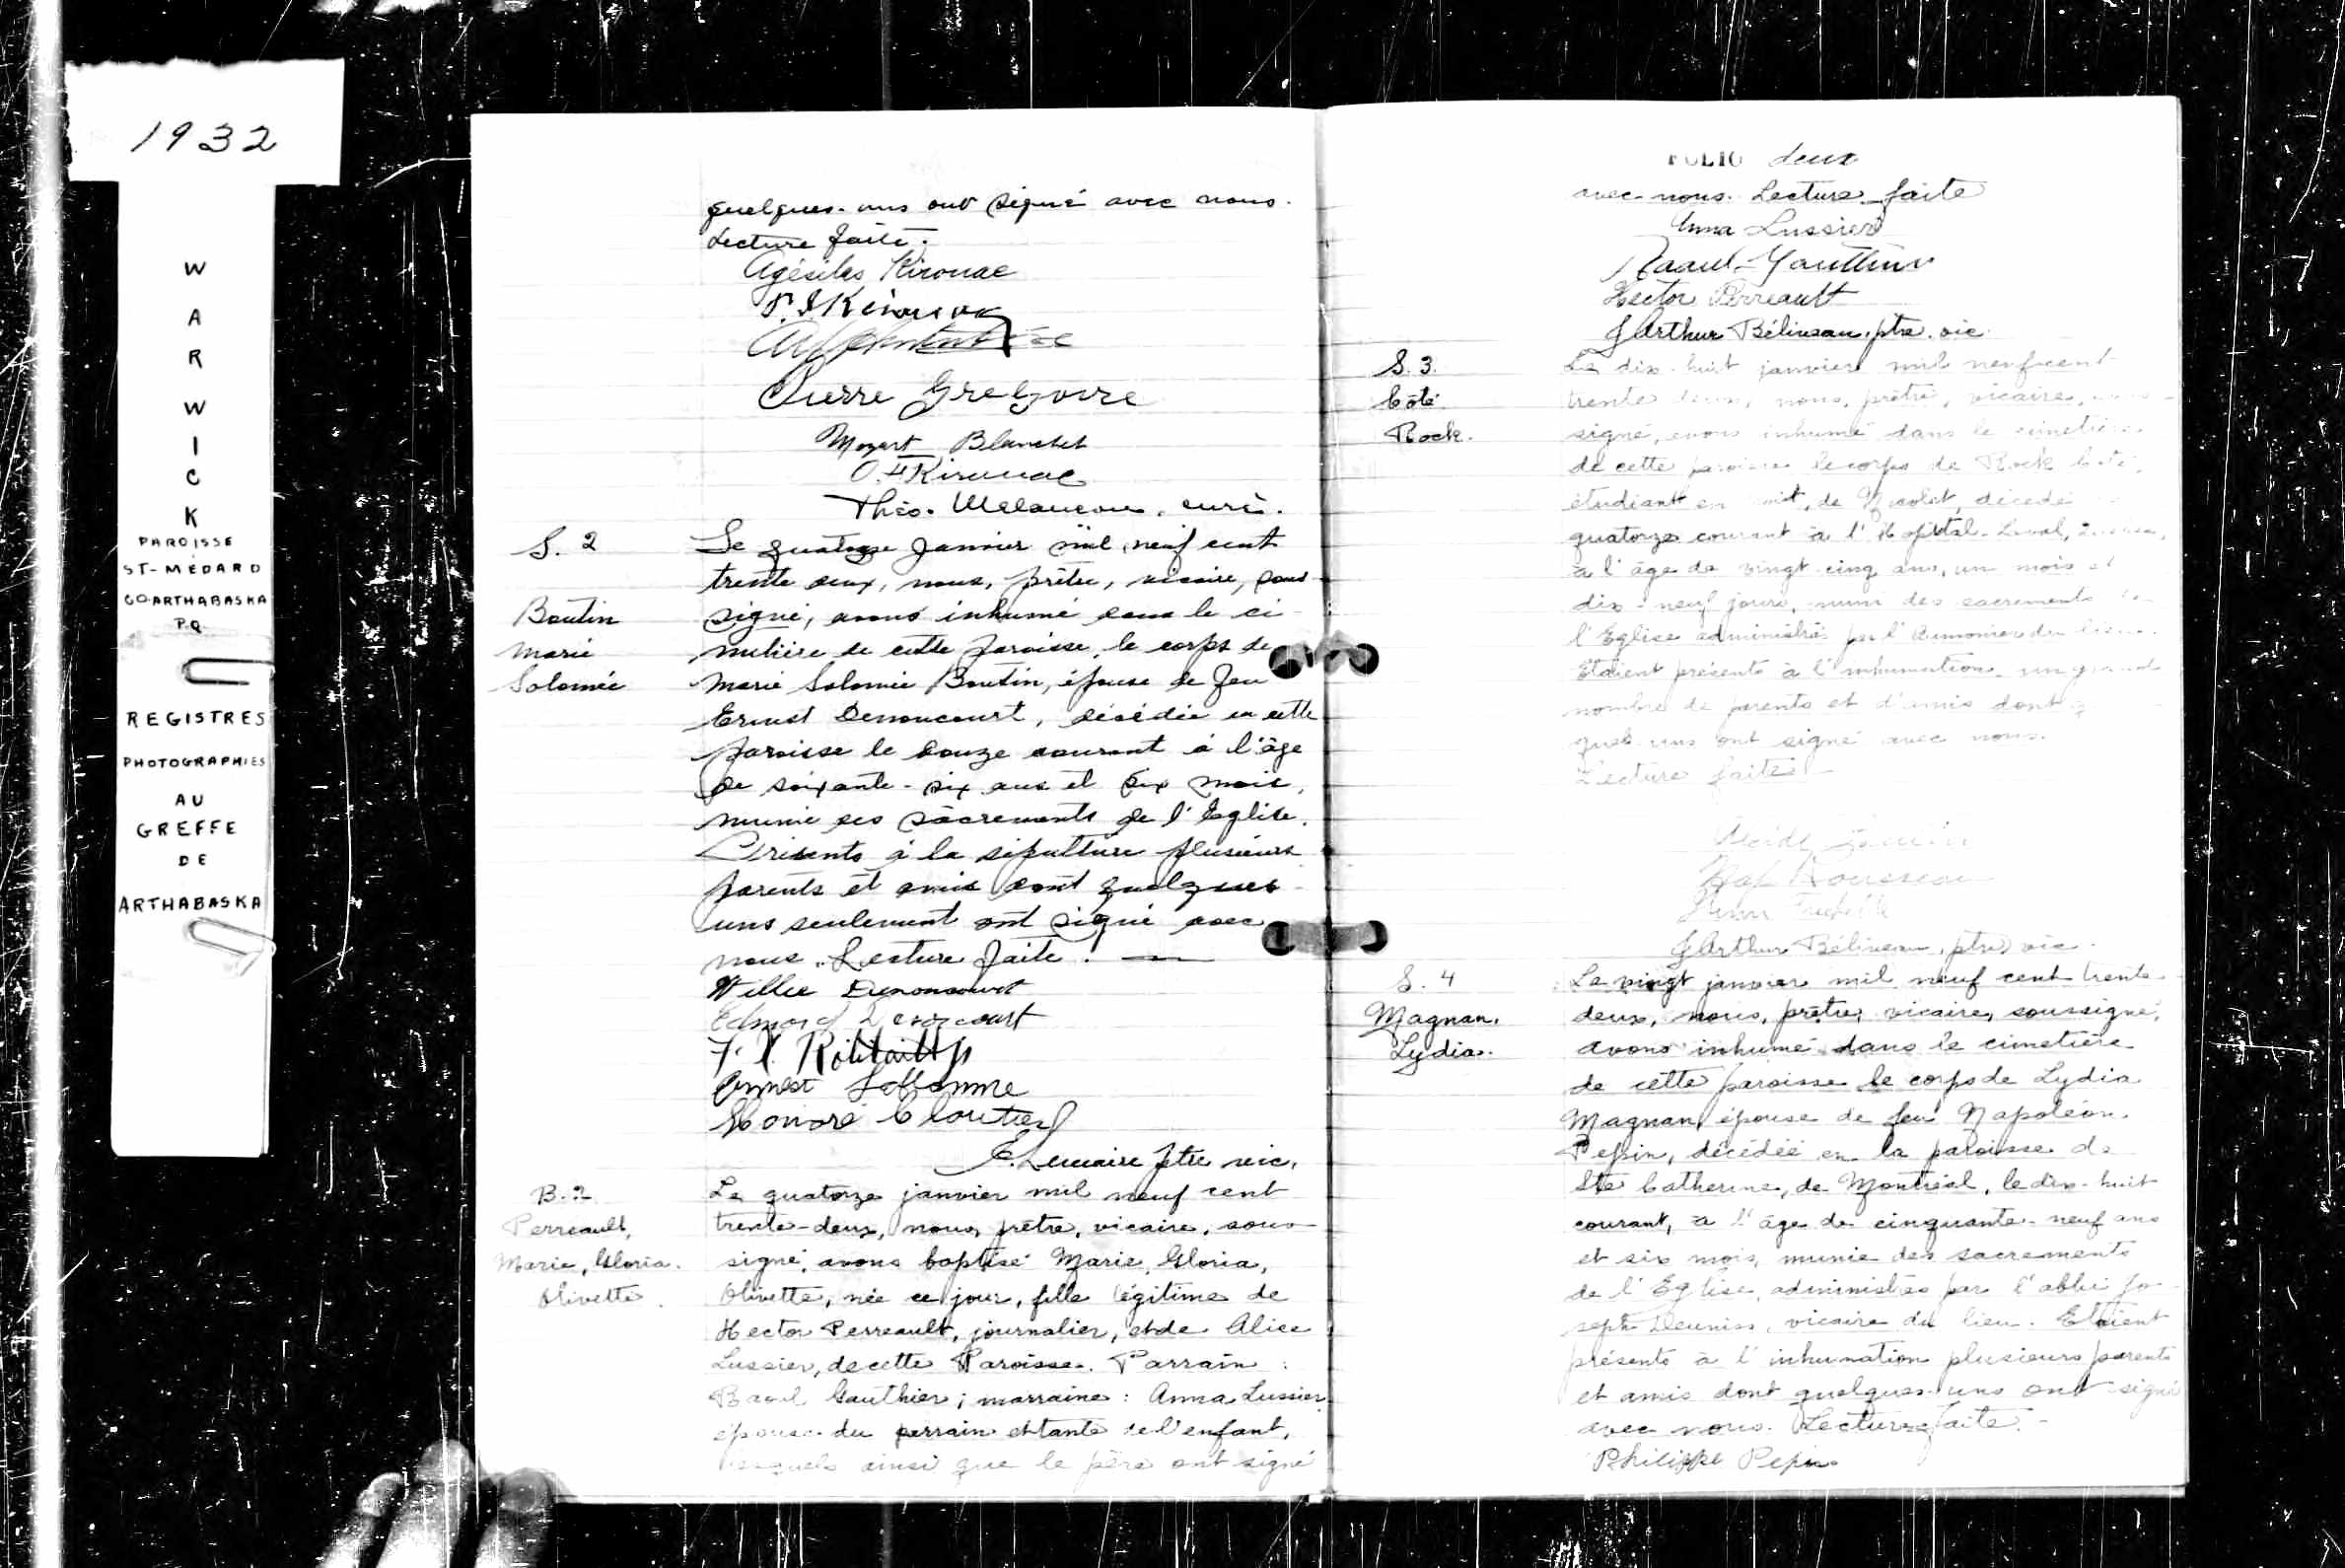 1932
W
A
R
W
I
C
K
PAROISSE
ST-MÉDARD
CO-ARTHABASKA
P.Q.
REGISTRES
PHOTOGRAPHIES
AU
GREFFE
DE
ARTHABASKA
quelques-uns ont signé avec nous.
Lecture faite.
Agésilas Kirouac
Pierre Gregoire
Mozart Blanchet
O. H Kirouac
Théo. Melançon, curé.
S. 2
Boutin
Marie
Solomée
Le quatorze Janvier mil neuf cent
trente deux, nous, prêtre, vicaire, sous-
signé, avons inhumé dans le ci-
metière de cette paroisse, le corps de
Marie Solomée Boutin, épouse de feu
Ernest Denoncourt, décédée en cette
paroisse le douze courant à l'âge
de soixante-six ans et six mois,
munie des sacrements de l'Eglise.
Présents à la sépulture plusieurs
parents et amis dont quelques-
uns seulement ont signé avec
nous. Lecture faite.
Willie Denoncourt
Edmond Denoncourt
Ernest
Honoré Cloutier
Lemaire ptre vic.
B. 2
Perreault,
Marie, Gloria.
Olivette.
Le quatorze janvier mil neuf cent
trente-deux, nous, prêtre, vicaire, sous-
signé, avons baptisé Marie, Gloria,
Olivette, née ce jour, fille légitime de
Hector Perreault, journalier, et de Alice
Lussier, de cette Paroisse. Parrain :
Raoul Gauthier; marraine : Anna Lussier,
épouse du parrain et tante de l'enfant,
lesquels ainsi que le père ont signé
FOLIO deux
avec nous. Lecture faite
Anna Lussier
Raoul Gauthier
Hector Perreault
J Arthur Béliveau, ptre. vic.
S. 3.
Côté
Rock.
Le dix-huit janvier mil neuf cent
trente deux, nous, prêtre, vicaire, sous-
signé, avons inhumé dans le cimetière
de cette paroisse le corps de Rock Côté,
étudiant en droit, de Nicolet, décédé
quatorze courant à l'Hôpital-Laval,
à l'âge de vingt-cinq ans, un mois et
dix-neuf jours, muni des sacrements de
l'Eglise administrés par l'aumônier du lieu.
Etaient présents à l'inhumation un grand
nombre de parents et d'amis dont
quel-uns ont signé avec nous.
Lecture faite
Rousseau
J Arthur Béliveau, ptre vic.
S. 4
Magnan,
Lydia.
Le vingt janvier mil neuf cent trente
deux, nous, prêtre, vicaire, soussigné,
avons inhumé dans le cimetière
de cette paroisse le corps de Lydia
Magnan, épouse de feu Napoléon
Pepin, décédée en la paroisse de
Ste Catherine, de Montréal, le dix-huit
courant, à l'âge de cinquante-neuf ans
et six mois, munie des sacrements
de l'Eglise, administrés par l'abbé Jo-
seph, vicaire du lieu. Etaient
présents à l'inhumation plusieurs parents
et amis dont quelques-uns ont signé
avec nous. Lecture faite.
Philippe Pepin